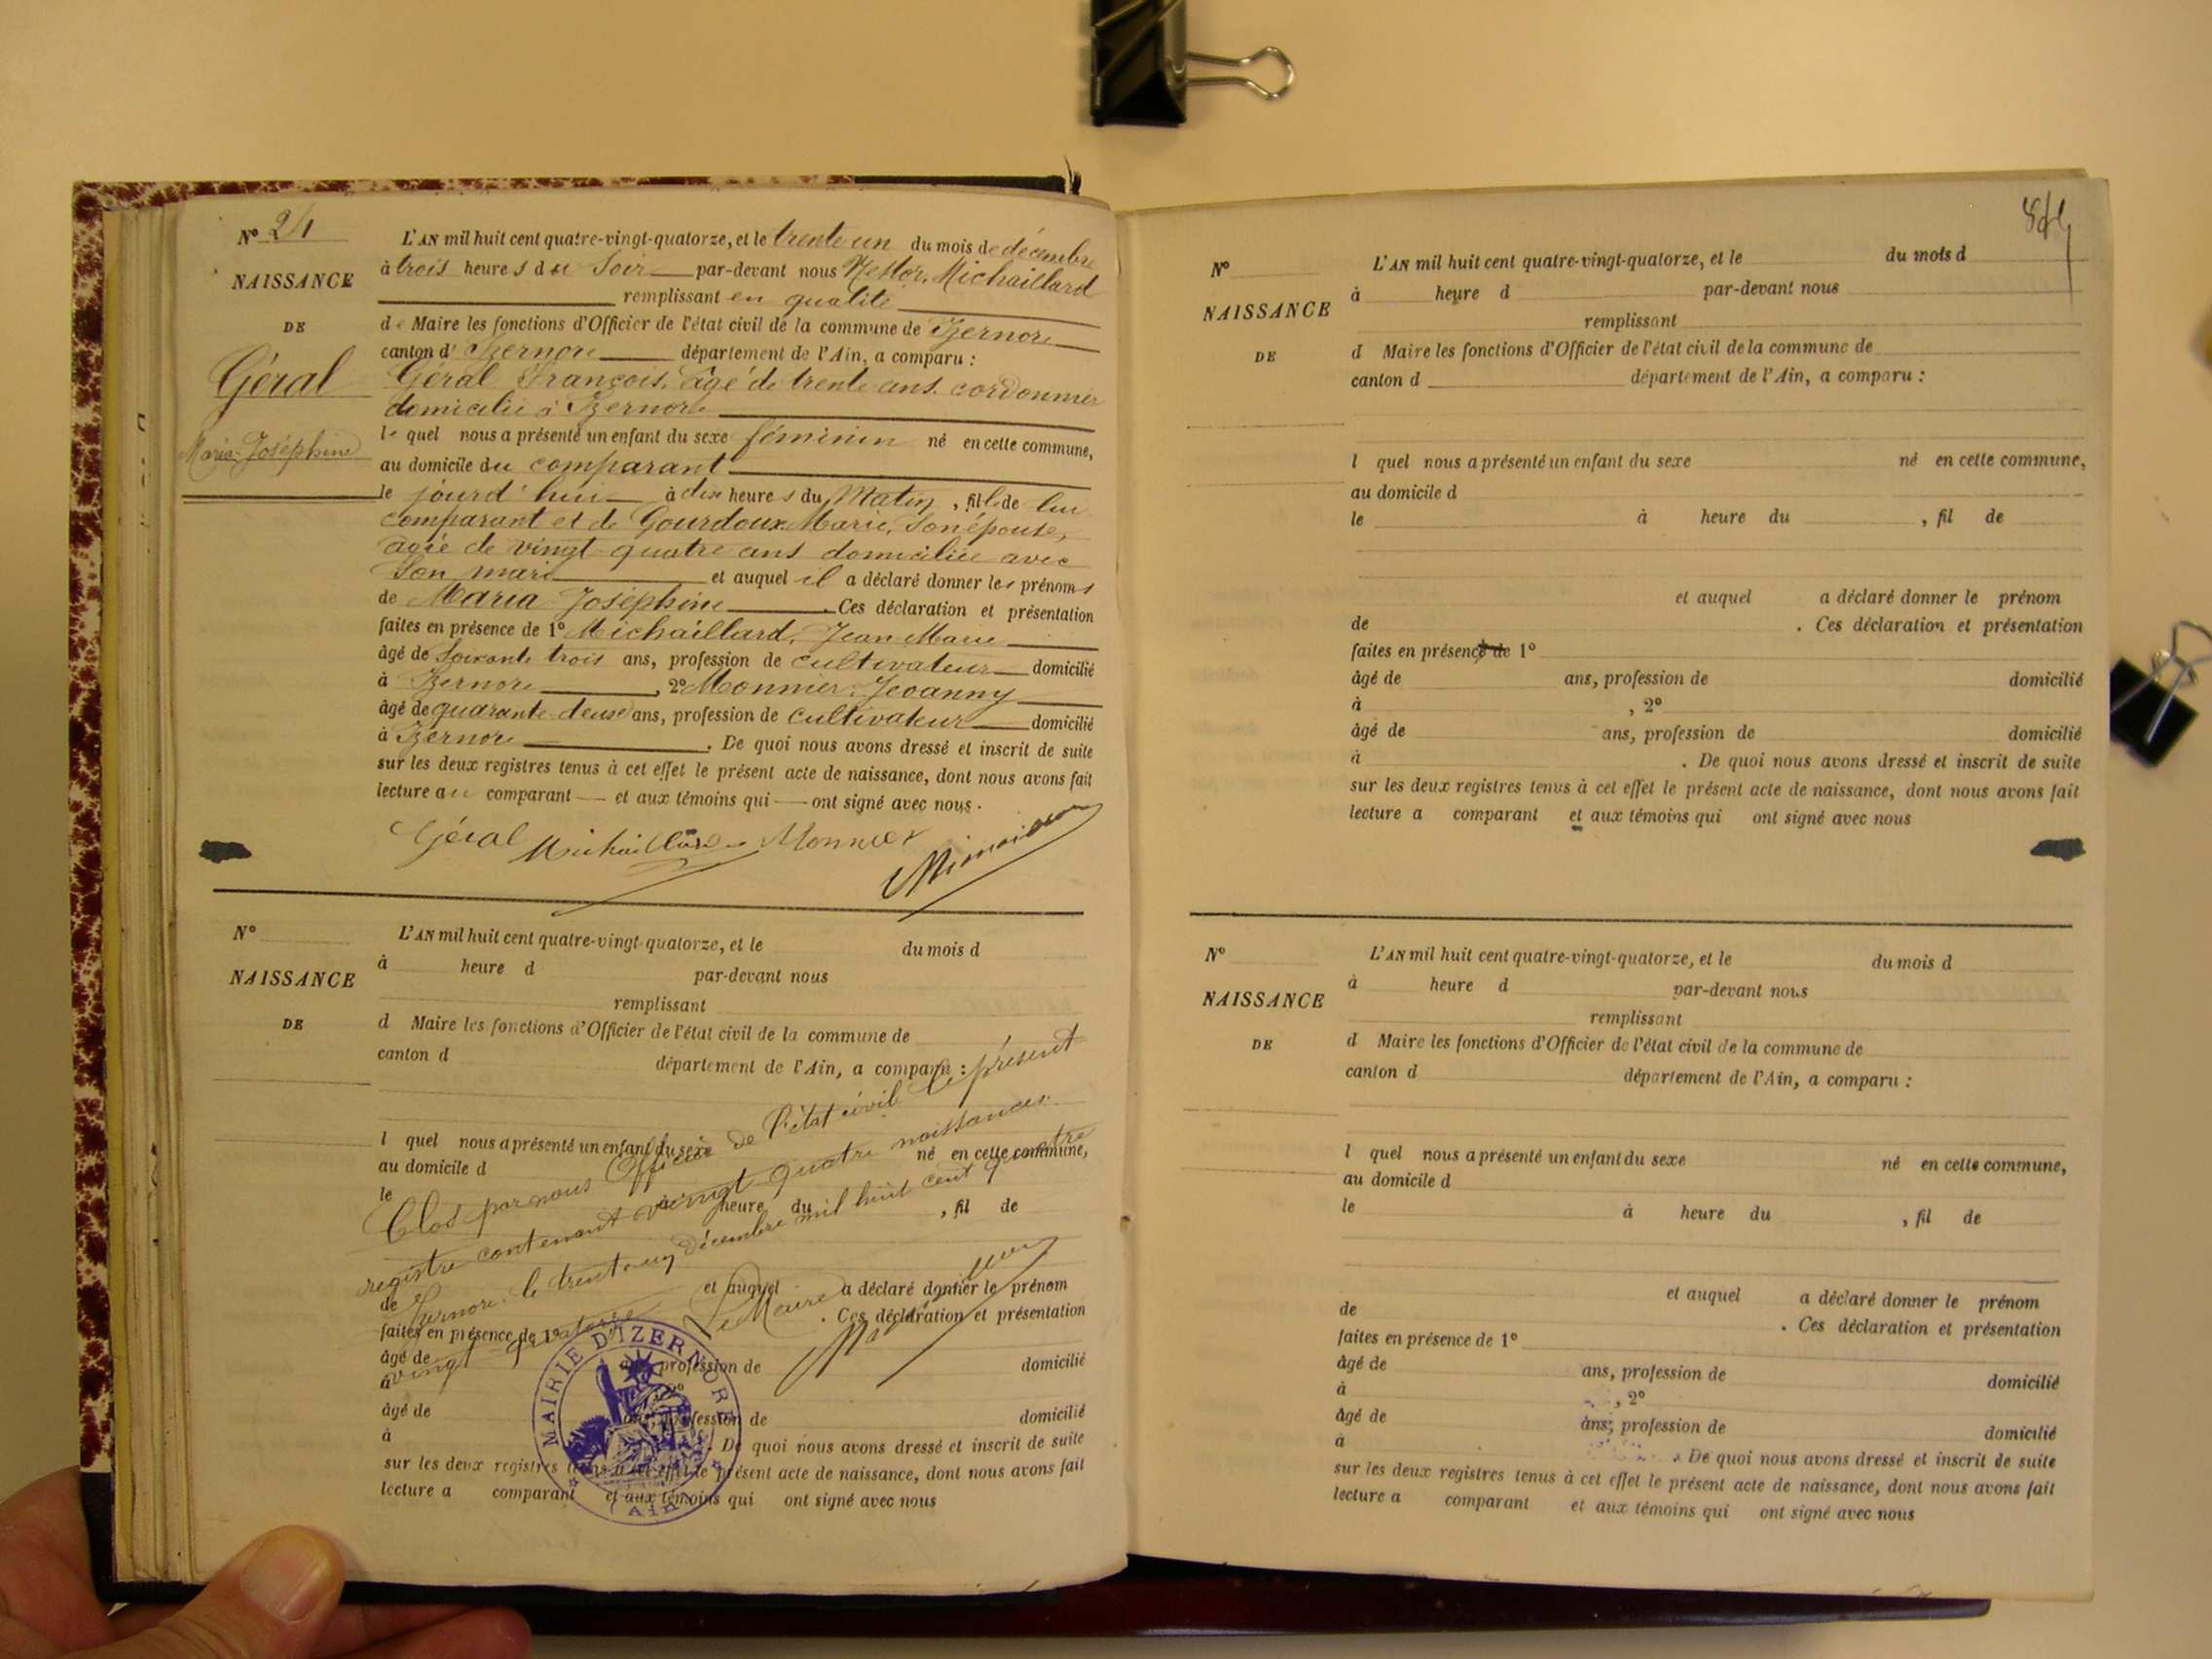 N° 24
NAISSANCE
DE
Géral
Maria-Joséphine
L'AN mil huit cent quatre-vingt-quatorze, et le trente un du mois de décembre
à trois heures du Soir par-devant nous Nestor, Michaillard
remplissant en qualité
de Maire les fonctions d'Officier de l'état civil de la commune de Izernore
canton d' Izernore département de l'Ain, a comparu :
Géral François, âgé de trente ans. cordonnier
domicilié à Izernore
le quel nous a présenté un enfant du sexe féminin né en cette commune,
au domicile du comparant
le jourd'hui à dix heures du Matin, fille de lui
comparant et de Gourdoux Marie, son épouse,
agée de vingt-quatre ans domiciliée avec
Son mari et auquel il a déclaré donner les prénoms
de Maria Joséphine. Ces déclaration et présentation
faites en présence de 1° Michaillard, Jean Marie
âgé de soixante trois ans, profession de cultivateur domicilié
à Izernore, 2° Monnier, Jeoanny
âgé de quarante-deux ans, profession de cultivateur domicilié
à Izernore. De quoi nous avons dressé et inscrit de suite
sur les deux registres tenus à cet effet le présent acte de naissance, dont nous avons fait
lecture au comparant et aux témoins qui ont signé avec nous.
Géral Michaillard Monnier
N°
NAISSANCE
DE
L'AN mil huit cent quatre-vingt-quatorze, et le du mois d
à heure d par-devant nous
remplissant
d Maire les fonctions d'Officier de l'état civil de la commune de
canton d département de l'Ain, a comparu :
l quel nous a présenté un enfant du sexe né en cette commune,
au domicile d
le à heure du , fil de
et auquel a déclaré donner le prénom
de . Ces déclaration et présentation
faites en présence de 1°
âgé de ans, profession de domicilié
à , 2°
âgé de ans, profession de domicilié
à . De quoi nous avons dressé et inscrit de suite
sur les deux registres tenus à cet effet le présent acte de naissance, dont nous avons fait
lecture a comparant et aux témoins qui ont signé avec nous
Clos par nous Officier de l'état civil le présent
registre contenant vingt quatre naissances.
Izernore le trente un décembre mil huit cent quatre
vingt quatorze
Le Maire
MAIRIE D'IZERNORE
(Ain)
N°
NAISSANCE
DE
L'AN mil huit cent quatre-vingt-quatorze, et le du mois d
à heure d par-devant nous
remplissant
d Maire les fonctions d'Officier de l'état civil de la commune de
canton d département de l'Ain, a comparu :
l quel nous a présenté un enfant du sexe né en cette commune,
au domicile d
le à heure du , fil de
et auquel a déclaré donner le prénom
de . Ces déclaration et présentation
faites en présence de 1°
âgé de ans, profession de domicilié
à , 2°
âgé de ans, profession de domicilié
à . De quoi nous avons dressé et inscrit de suite
sur les deux registres tenus à cet effet le présent acte de naissance, dont nous avons fait
lecture a comparant et aux témoins qui ont signé avec nous
N°
NAISSANCE
DE
L'AN mil huit cent quatre-vingt-quatorze, et le du mois d
à heure d par-devant nous
remplissant
d Maire les fonctions d'Officier de l'état civil de la commune de
canton d département de l'Ain, a comparu :
l quel nous a présenté un enfant du sexe né en cette commune,
au domicile d
le à heure du , fil de
et auquel a déclaré donner le prénom
de . Ces déclaration et présentation
faites en présence de 1°
âgé de ans, profession de domicilié
à , 2°
âgé de ans, profession de domicilié
à . De quoi nous avons dressé et inscrit de suite
sur les deux registres tenus à cet effet le présent acte de naissance, dont nous avons fait
lecture a comparant et aux témoins qui ont signé avec nous